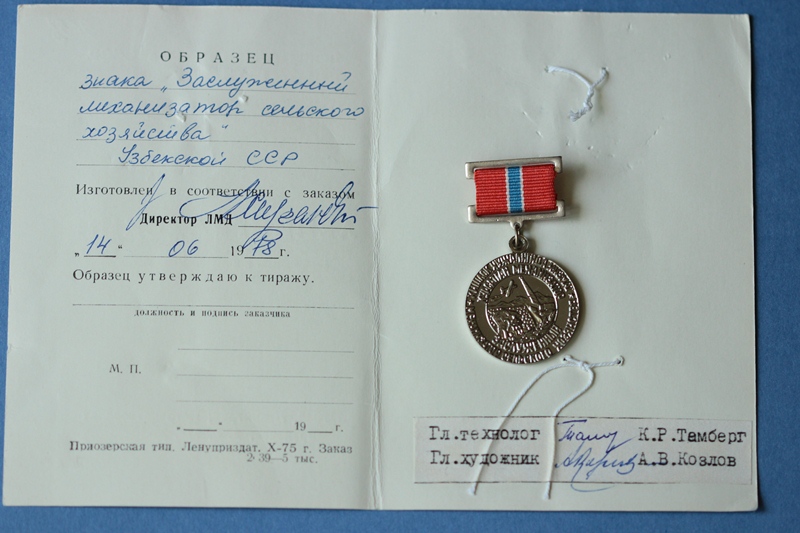 ОБРАЗЕЦ
знака „Заслуженный
механизатор сельского
хозяйства"
Узбекской ССР
Изготовлен в соответствии с заказом
Директор ЛМД
„14" 06 1978 г.
Образец утверждаю к тиражу.
должность и подпись заказчика
М. П.
„ " 19 г.
Приозерская тип. Ленуприздат. X-75 г. Заказ
2 39—5 тыс.
Гл.технолог К.Р.Тамберг
Гл.художник А.В.Козлов